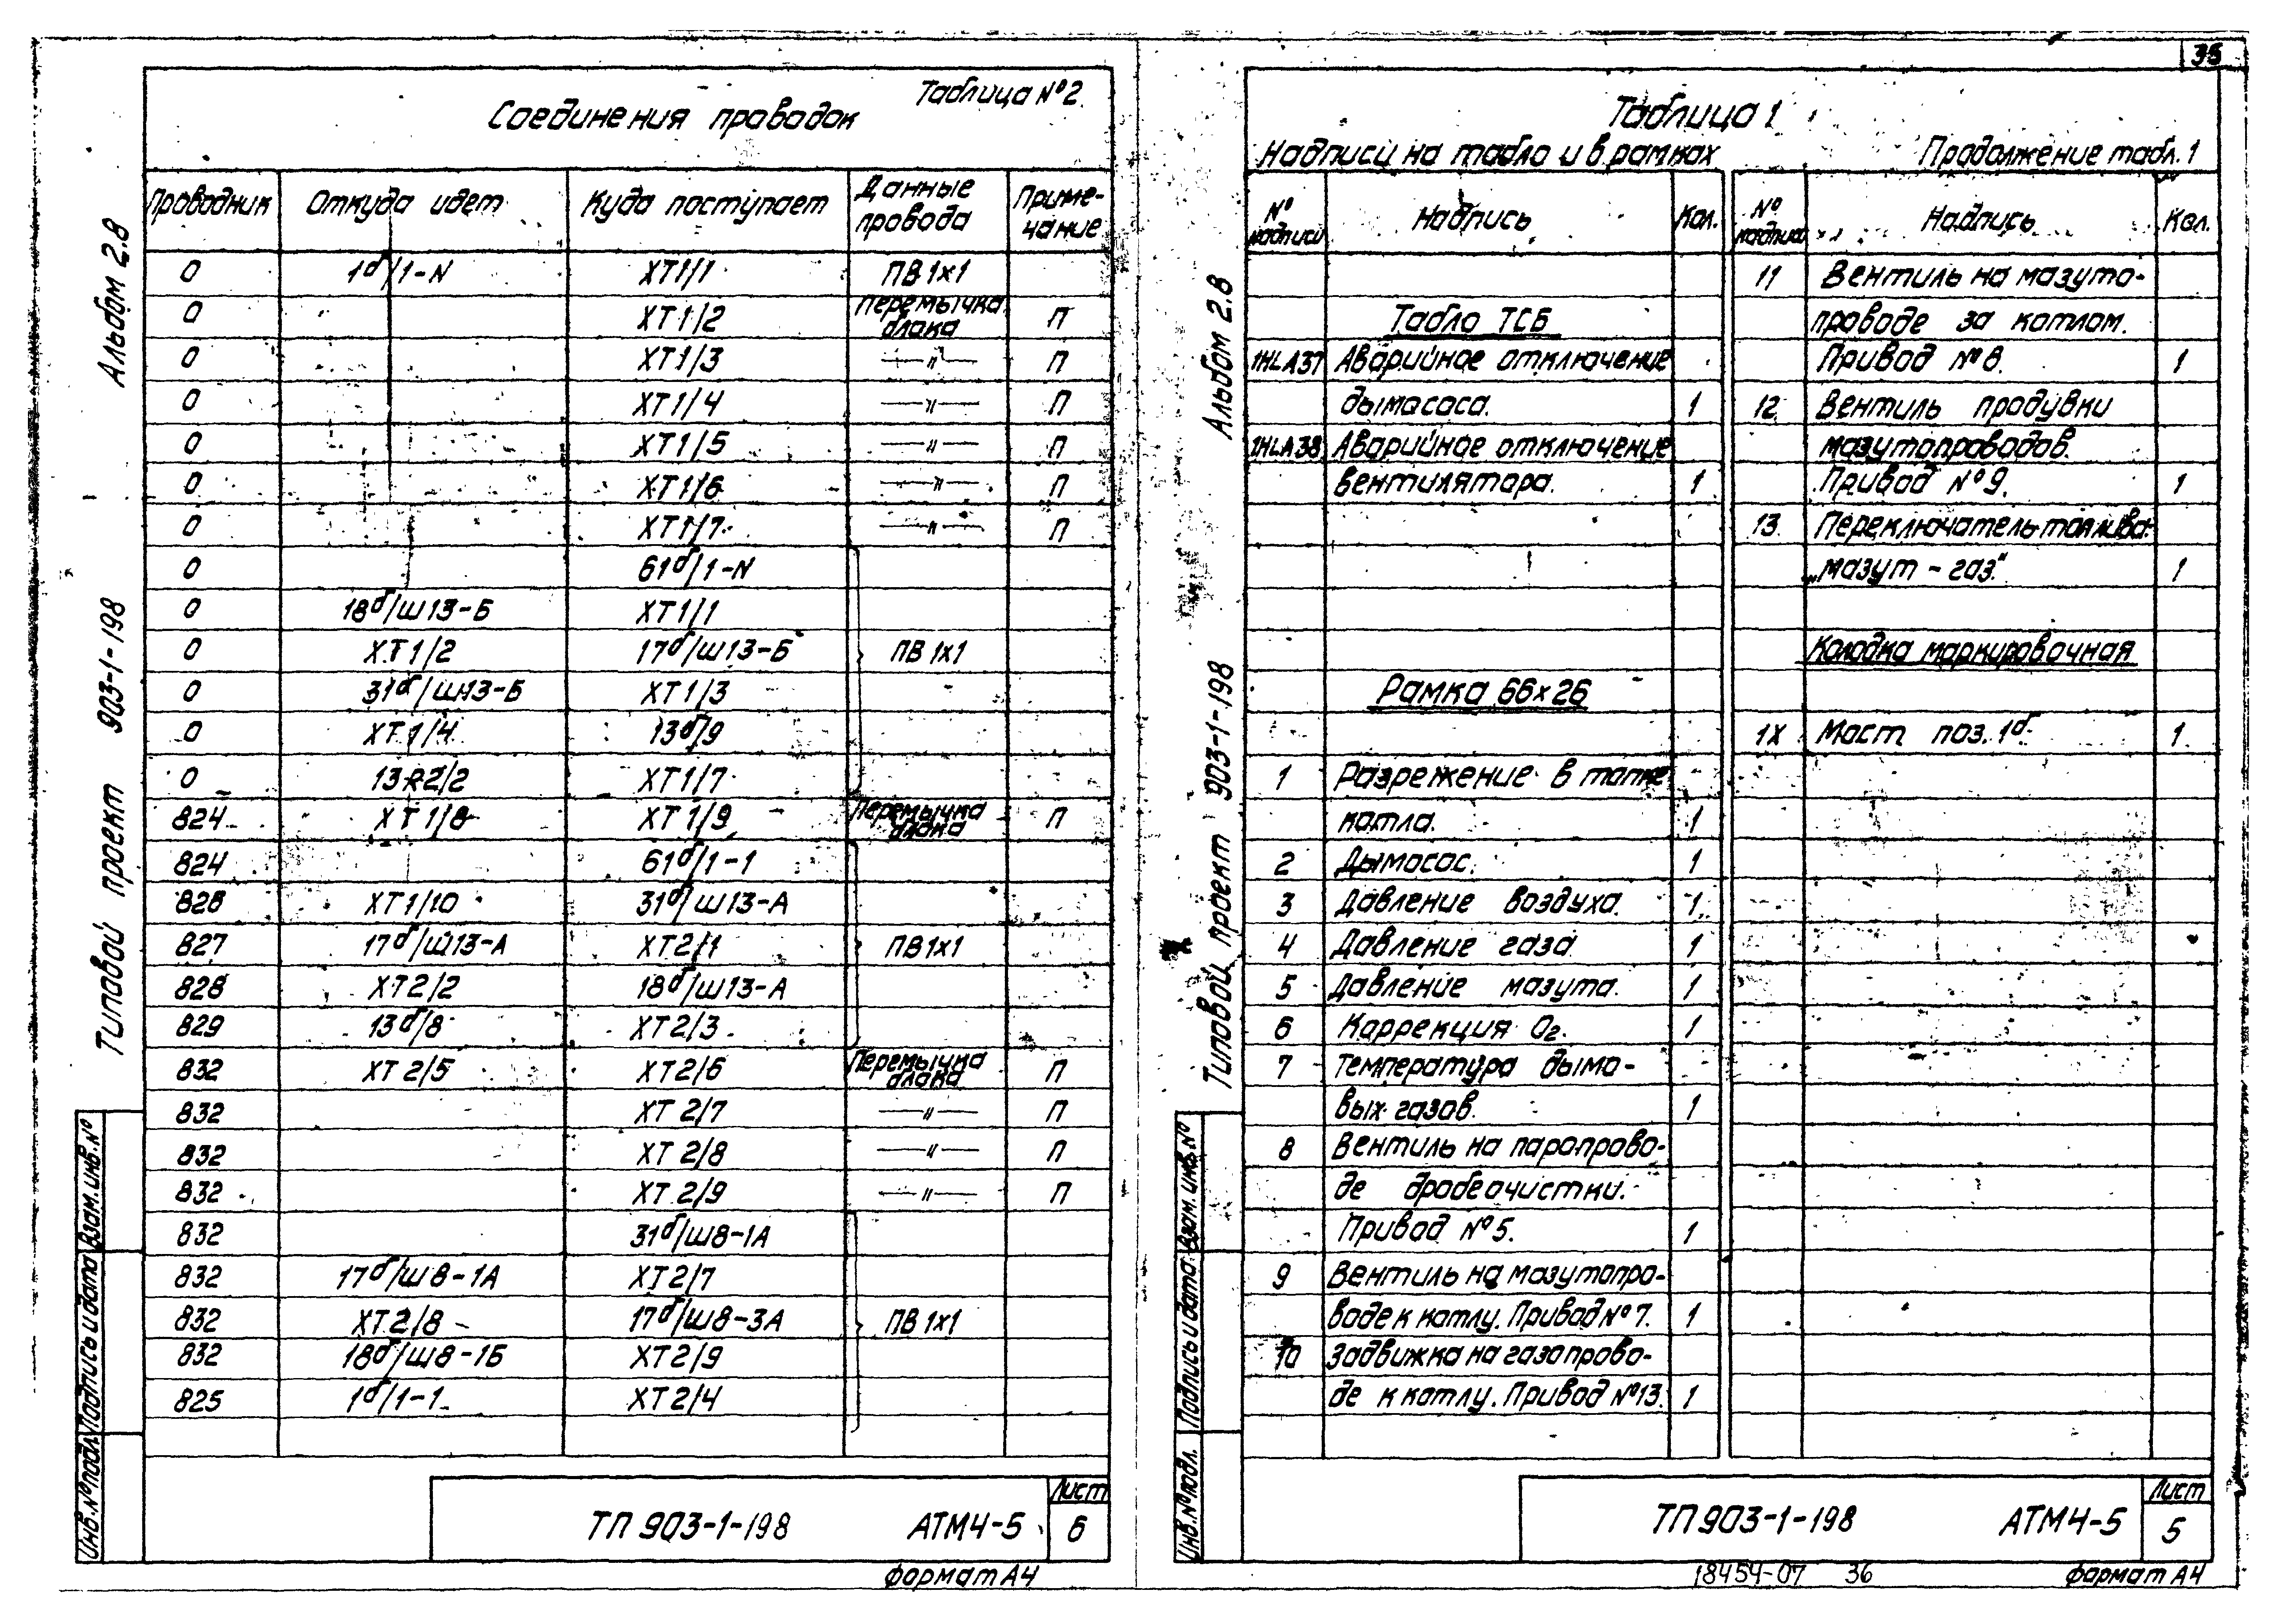 35
Таблица №2
Соединения проводок
Проводник Откуда идет Куда поступает Данные провода Примечание
0 1б/1-N ХТ1/1 ПВ1х1
0 ХТ1/2 Перемычка блока П
0 ХТ1/3 —"— П
0 ХТ1/4 —"— П
0 ХТ1/5 —"— П
0 ХТ1/6 —"— П
0 ХТ1/7 —"— П
0 61б/1-N
0 18б/Ш13-Б ХТ1/1
0 ХТ1/2 17б/Ш13-Б ПВ1х1
0 31б/Ш13-Б ХТ1/3
0 ХТ1/4 13б/9
0 13R2/2 ХТ1/7
824 ХТ1/8 ХТ1/9 Перемычка блока П
824 61б/1-1
828 ХТ1/10 31б/Ш13-А
827 17б/Ш13-А ХТ2/1 ПВ1х1
828 ХТ2/2 18б/Ш13-А
829 13б/8 ХТ2/3
832 ХТ2/5 ХТ2/6 Перемычка блока П
832 ХТ2/7 —"— П
832 ХТ2/8 —"— П
832 ХТ2/9 —"— П
832 31б/Ш8-1А
832 17б/Ш8-1А ХТ2/7
832 ХТ2/8 17б/Ш8-3А ПВ1х1
832 18б/Ш8-1Б ХТ2/9
825 1б/1-1 ХТ2/4
ТП 903-1-198 АТМ4-5 Лист 6
формат А4
Альбом 2.8
Типовой проект 903-1-198
Инв.№подл. Подпись и дата Взам.инв.№
Таблица 1
Надписи на табло и в рамках
Продолжение табл.1
№ надписи Надпись Кол.
Табло ТСБ
1HLA37 Аварийное отключение
дымососа. 1
1HLA38 Аварийное отключение
вентилятора. 1
Рамка 66х26
1 Разрежение в топке
котла. 1
2 Дымосос. 1
3 Давление воздуха. 1
4 Давление газа 1
5 Давление мазута. 1
6 Коррекция О2. 1
7 Температура дымо-
вых газов. 1
8 Вентиль на паропрово-
де дробеочистки.
Привод №5. 1
9 Вентиль на мазутопро-
воде к котлу. Привод №7. 1
10 Задвижка на газопрово-
де к котлу. Привод №13. 1
№ надписи Надпись Кол.
11 Вентиль на мазуто-
проводе за котлом.
Привод №8. 1
12 Вентиль продувки
мазутопроводов.
Привод №9. 1
13 Переключатель топлива
„мазут - газ." 1
Колодка маркировочная
1Х Мост поз. 1б 1
ТП 903-1-198 АТМ4-5 Лист 5
18454-07 36 формат А4
Альбом 2.8
Типовой проект 903-1-198
Инв.№подл. Подпись и дата Взам.инв.№